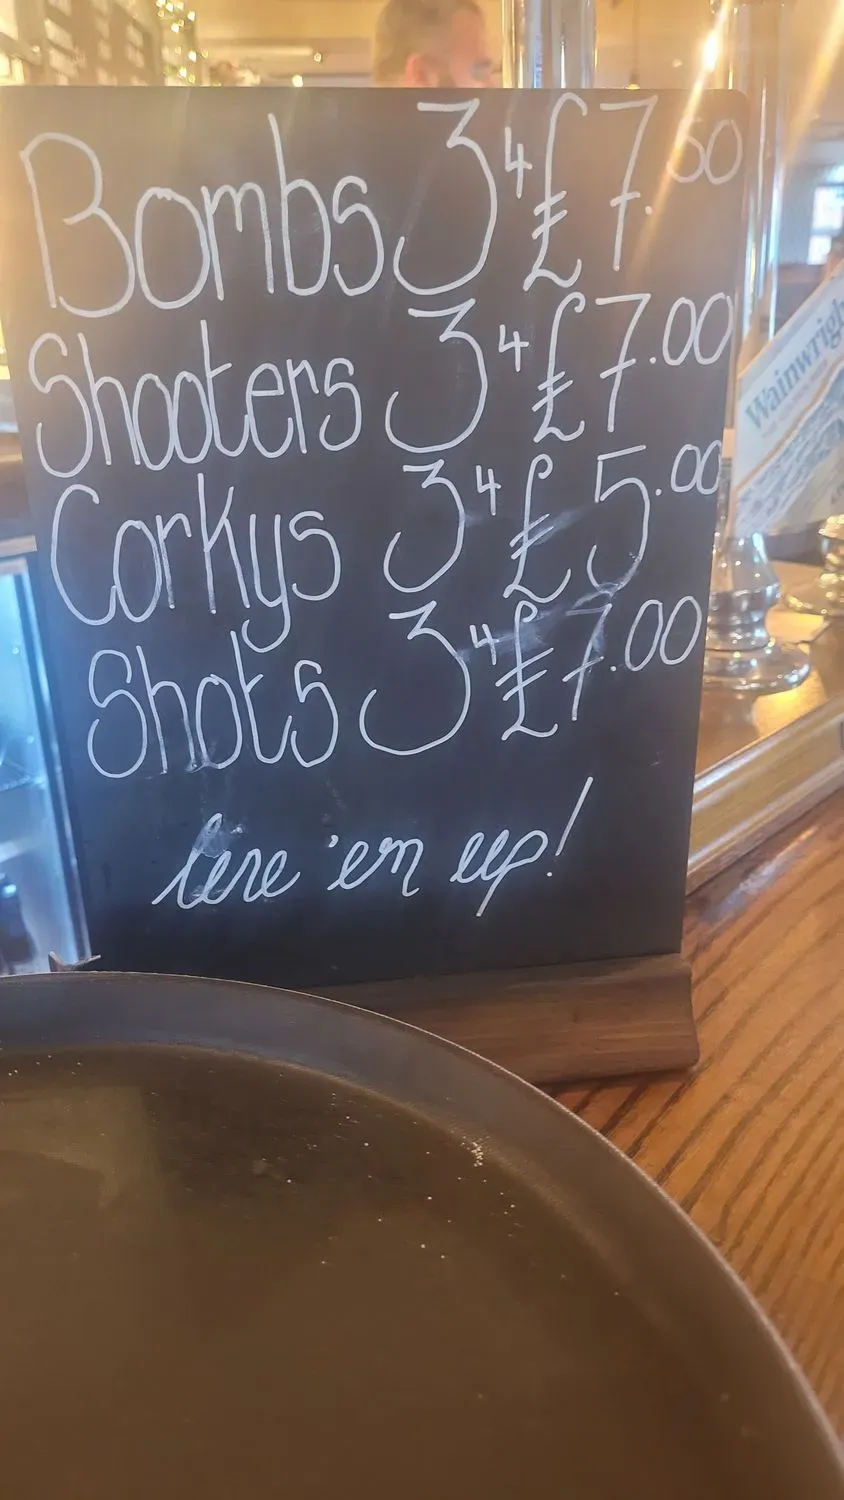 Bombs 3 4 £7.50
Shooters 3 4 £7.00
Corkys 3 4 £5.00
Shots 3 4 £7.00
line 'em up!
Wainwright